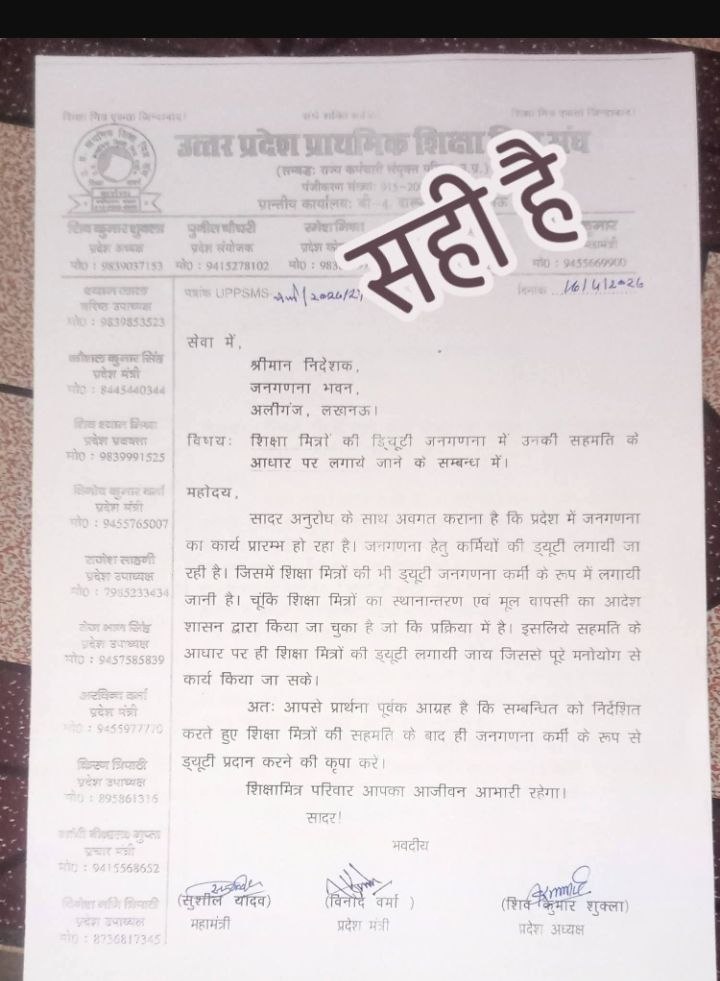 शिक्षा मित्र एकता जिन्दाबाद!
उत्तर प्रदेश प्राथमिक शिक्षा संघ
(सम्बद्धः राज्य कर्मचारी संयुक्त
पंजीकरण संख्याः 915-20
प्रान्तीय कार्यालयः बी-4,
सही है
शिव कुमार शुक्ला
प्रदेश अध्यक्ष
मो0 : 9839037153
पुनीत चौधरी
प्रदेश संयोजक
मो0 : 9415278102
रमेश मिश्रा
प्रदेश
मो0 : 983
मो0 : 9455669900
पत्रांक UPPSMS
दिनांक 16/4/2026
वरिष्ठ उपाध्यक्ष
मो0 : 9839853523
कौशल कुमार सिंह
प्रदेश मंत्री
मो0 : 8445440344
प्रदेश प्रवक्ता
मो0 : 9839991525
प्रदेश मंत्री
मो0 : 9455765007
प्रदेश उपाध्यक्ष
मो0 : 7985233434
प्रदेश उपाध्यक्ष
मो0 : 9457585839
प्रदेश मंत्री
मो0 : 9455977770
प्रदेश उपाध्यक्ष
मो0 : 895861316
गुप्ता
प्रचार मंत्री
मो0 : 9415568652
त्रिपाठी
प्रदेश उपाध्यक्ष
मो0 : 8736817345
सेवा में,
श्रीमान निदेशक,
जनगणना भवन,
अलीगंज, लखनऊ।
विषयः शिक्षा मित्रों की ड्यिूटी जनगणना में उनकी सहमति के
आधार पर लगाये जाने के सम्बन्ध में।
महोदय,
सादर अनुरोध के साथ अवगत कराना है कि प्रदेश में जनगणना
का कार्य प्रारम्भ हो रहा है। जनगणना हेतु कर्मियों की ड्यूटी लगायी जा
रही है। जिसमें शिक्षा मित्रों की भी ड्यूटी जनगणना कर्मी के रूप में लगायी
जानी है। चूंकि शिक्षा मित्रों का स्थानान्तरण एवं मूल वापसी का आदेश
शासन द्वारा किया जा चुका है जो कि प्रक्रिया में है। इसलिये सहमति के
आधार पर ही शिक्षा मित्रों की ड्यूटी लगायी जाय जिससे पूरे मनोयोग से
कार्य किया जा सके।
अतः आपसे प्रार्थना पूर्वक आग्रह है कि सम्बन्धित को निर्देशित
करते हुए शिक्षा मित्रों की सहमति के बाद ही जनगणना कर्मी के रूप से
ड्यूटी प्रदान करने की कृपा करें।
शिक्षामित्र परिवार आपका आजीवन आभारी रहेगा।
सादर!
भवदीय
(सुशील यादव)
महामंत्री
(विनोद वर्मा )
प्रदेश मंत्री
(शिव कुमार शुक्ला)
प्रदेश अध्यक्ष